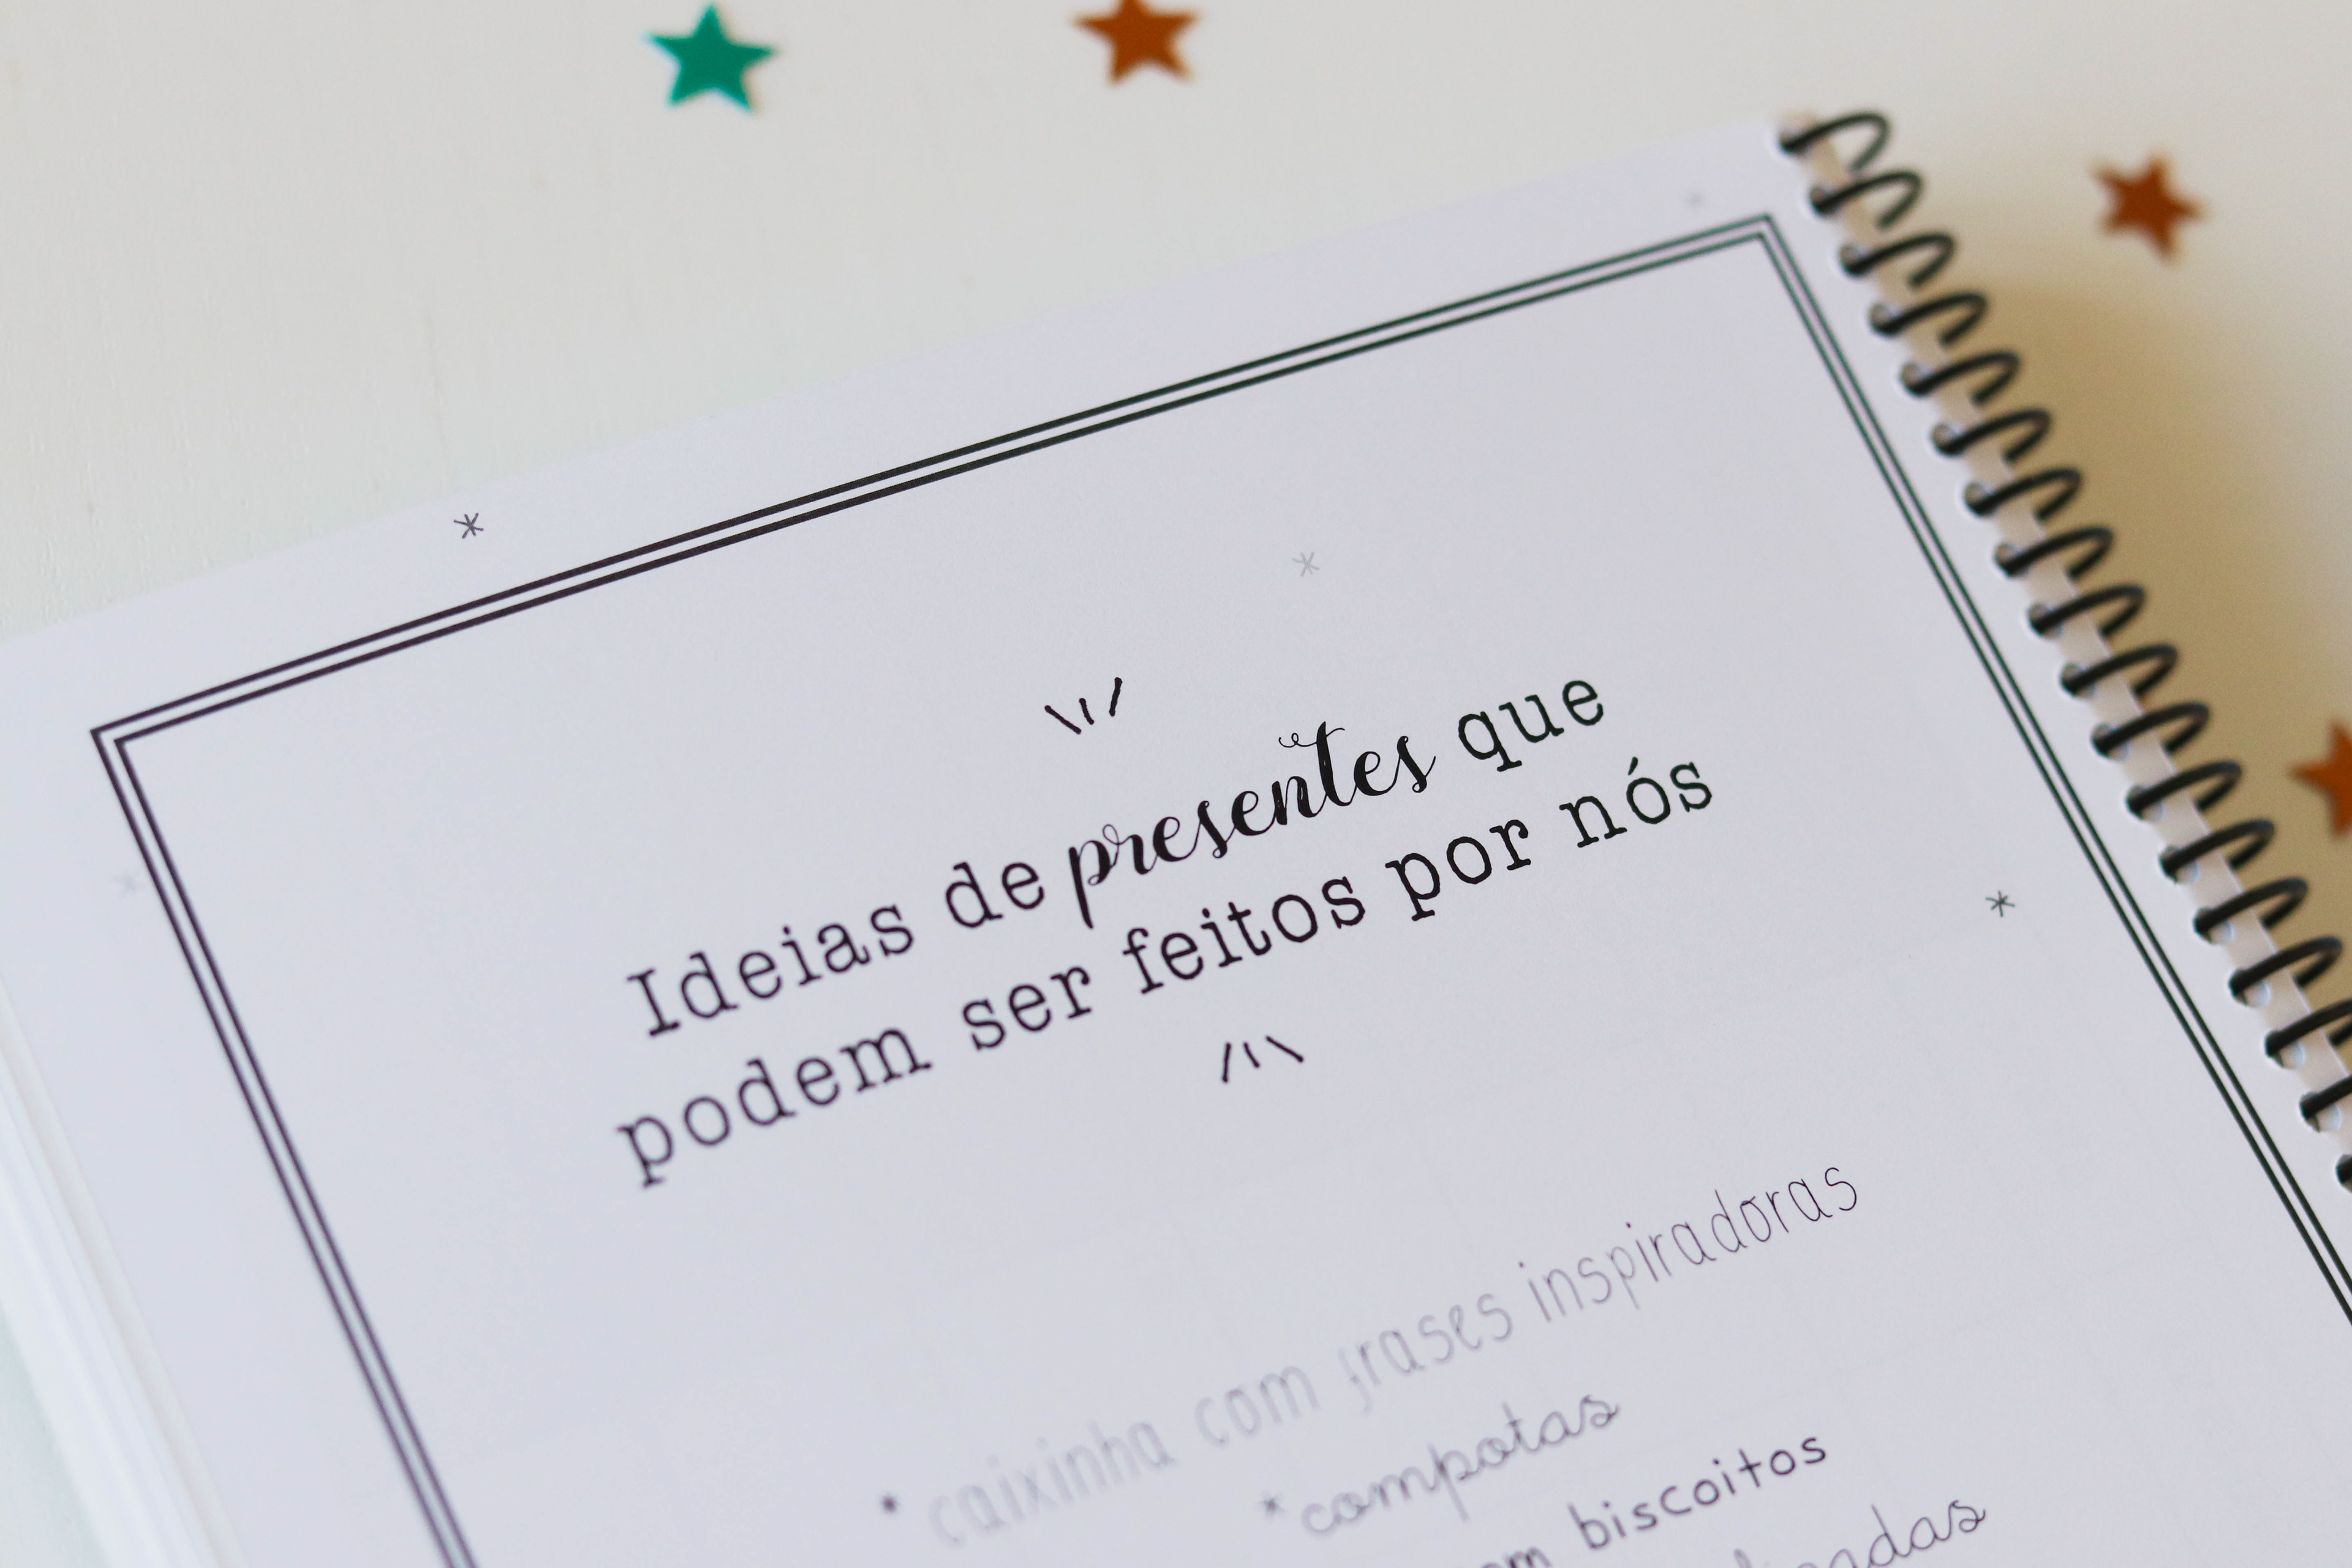 Ideias de presentes que
podem ser feitos por nós
* caixinha com frases inspiradoras
* compotas
biscoitos